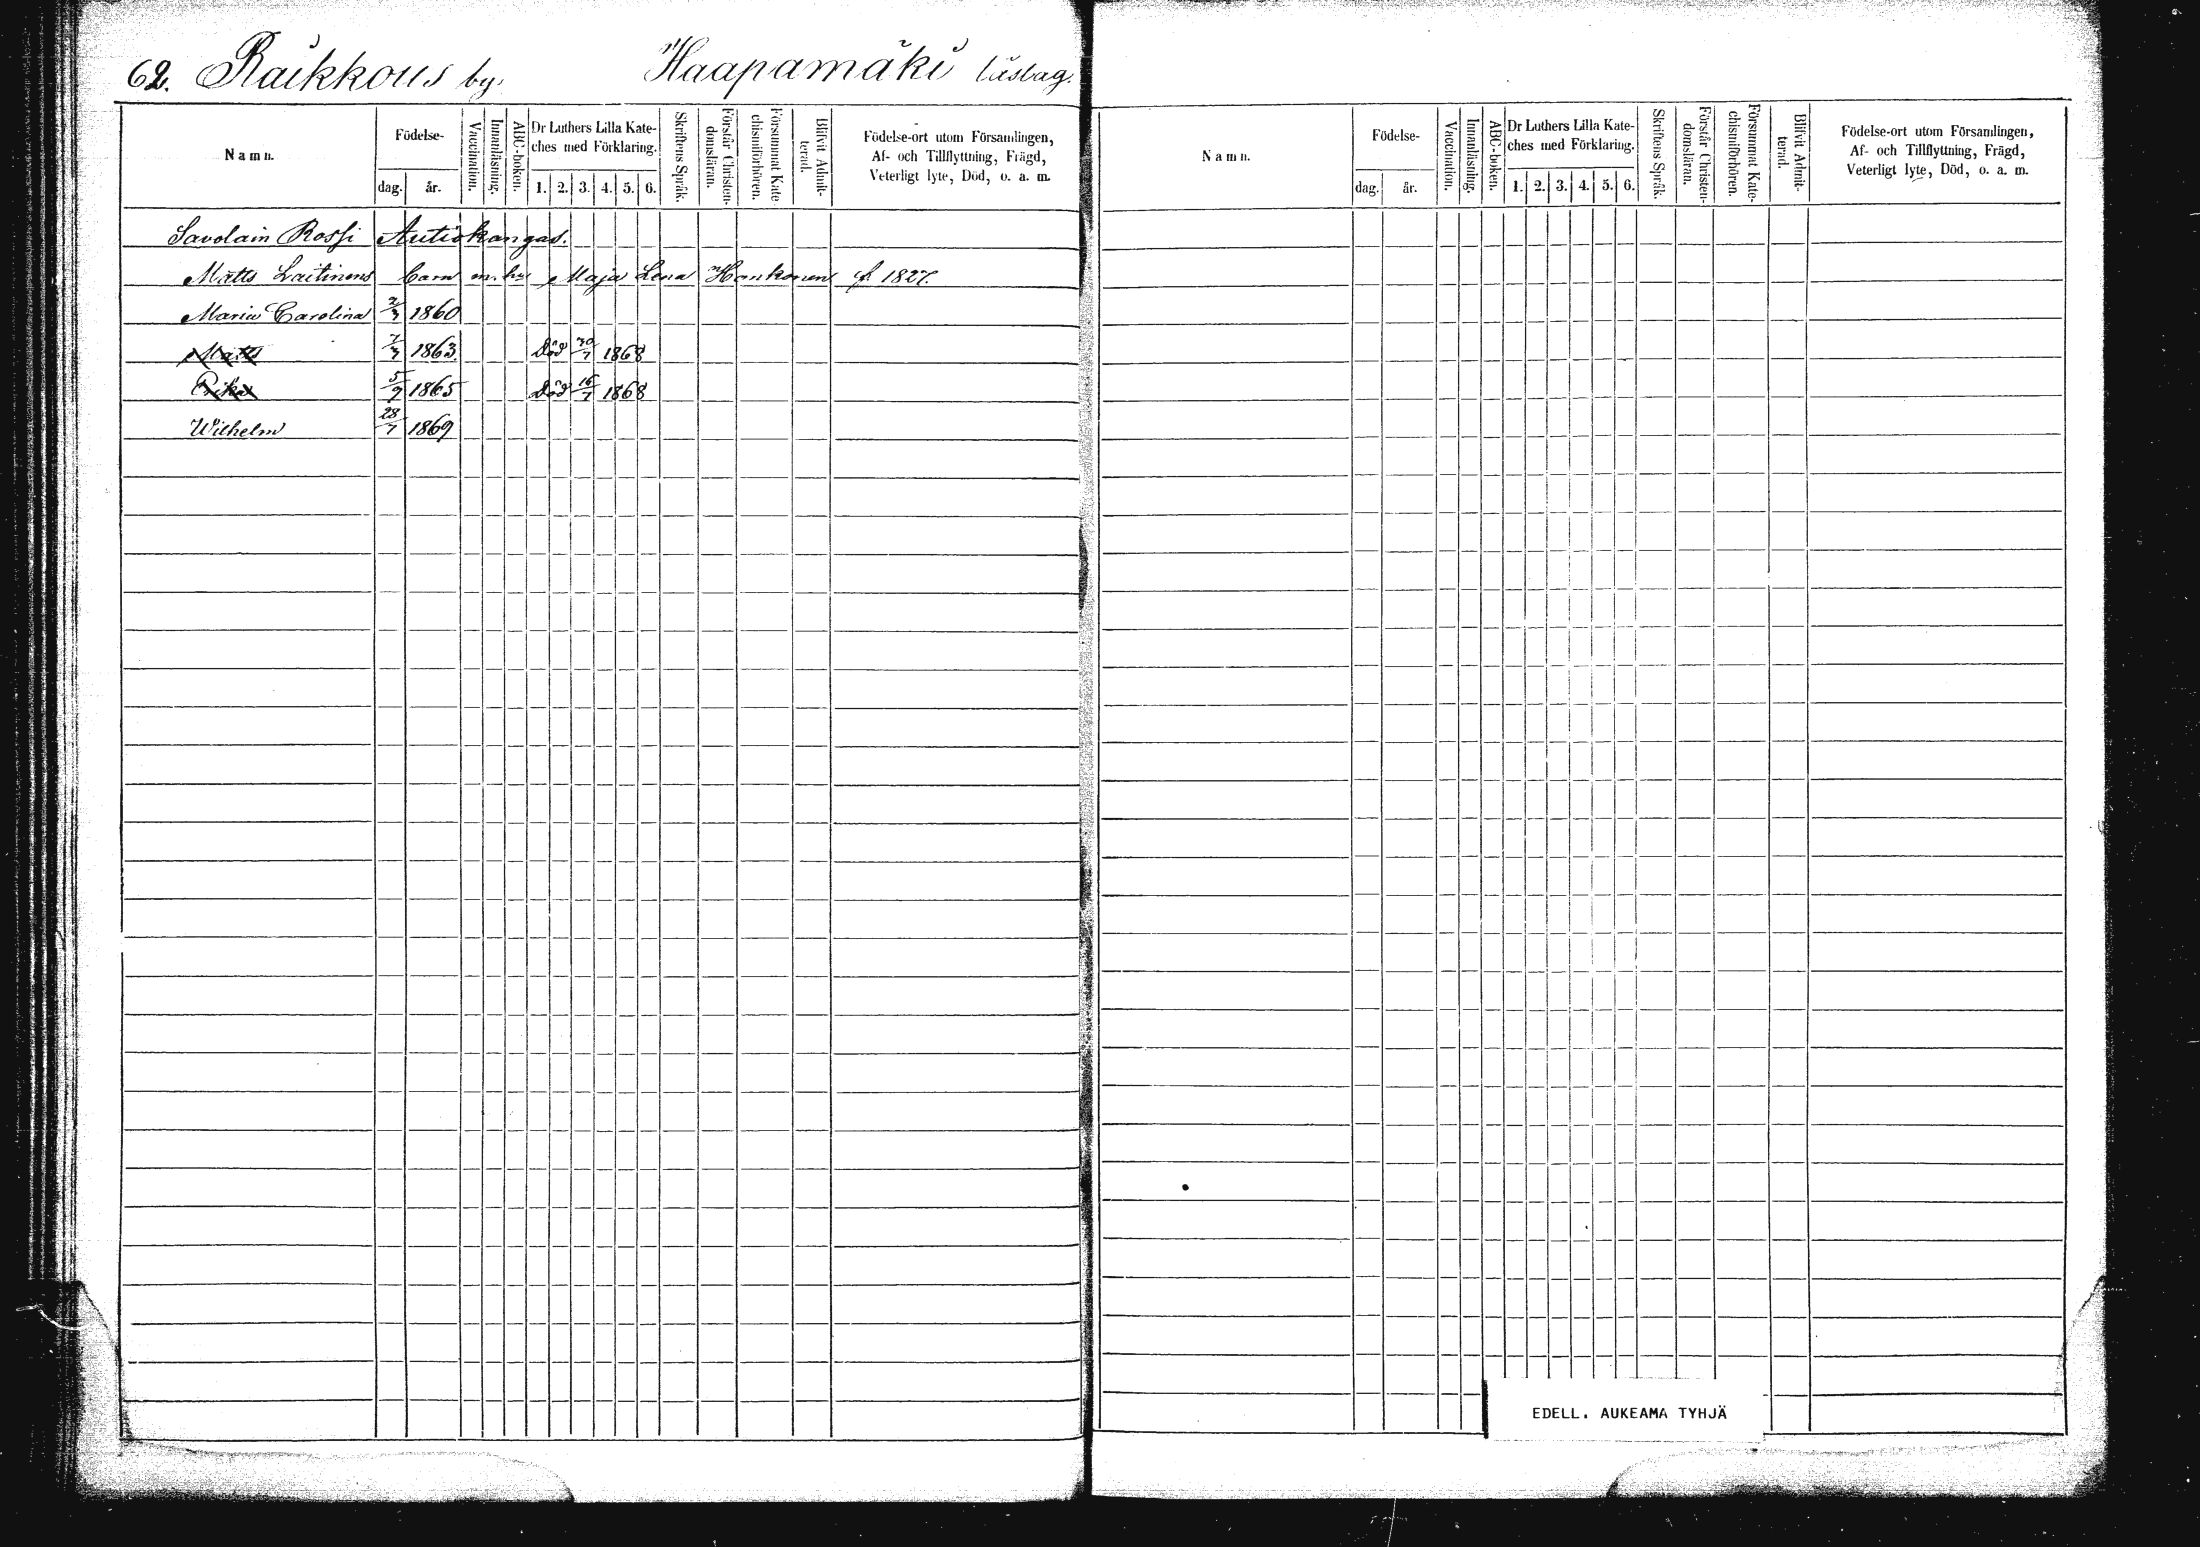 62. Raikkous by. Haapamäki läslag.
Namn.
Födelse-
dag. år.
Vaccination.
Innanläsning.
ABC-boken.
Dr Luthers Lilla Kate-
ches med Förklaring.
1. 2. 3. 4. 5. 6.
Skriftens Språk.
Förstår Christen-
domsläran.
Försummat Kate-
chismiförhören.
Blifvit Admit-
terad.
Födelse-ort utom Församlingen,
Af- och Tillflyttning, Frägd,
Veterligt lyte, Död, o. a. m.
Savolain Rossi Autiokangas.
Matts Laitinens barn m. hu Maja Lena Honkonen f. 1827.
Maria Carolina 2/7 1860
Matts 7/7 1863. död 30/7 1868
Erika 5/9 1865 död 16/7 1868
Wilhelm 28/7 1869
Namn.
Födelse-
dag. år.
Vaccination.
Innanläsning.
ABC-boken.
Dr Luthers Lilla Kate-
ches med Förklaring.
1. 2. 3. 4. 5. 6.
Skriftens Språk.
Förstår Christen-
domsläran.
Försummat Kate-
chismiförhören.
Blifvit Admit-
terad.
Födelse-ort utom Församlingen,
Af- och Tillflyttning, Frägd,
Veterligt lyte, Död, o. a. m.
EDELL. AUKEAMA TYHJÄ